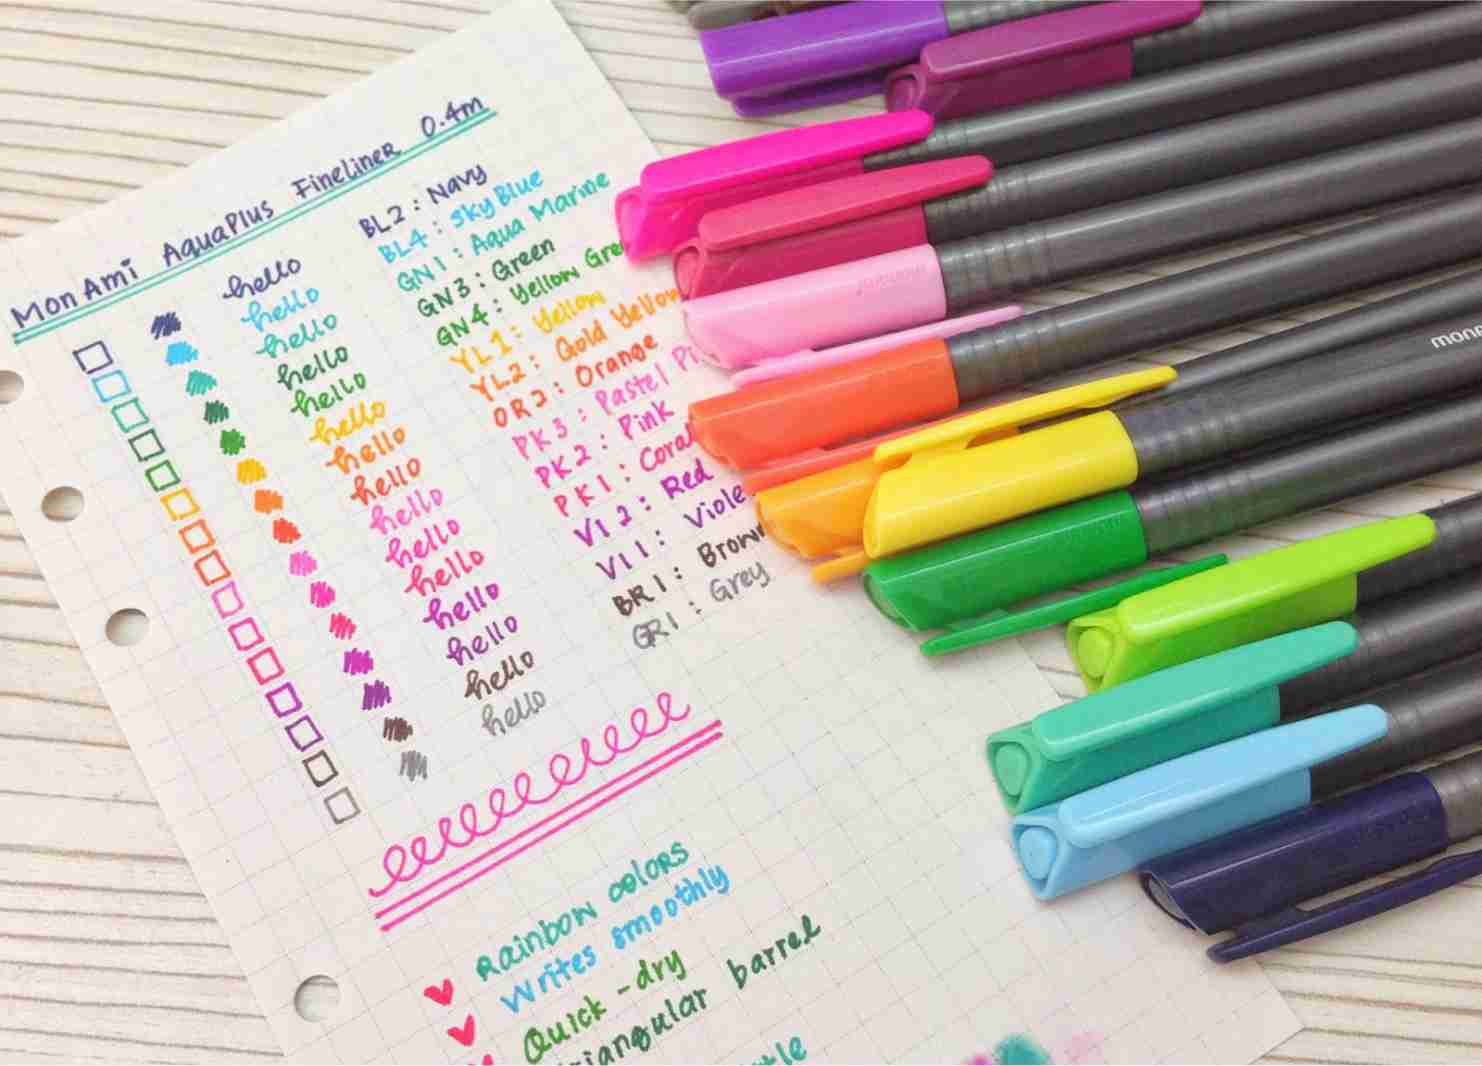 MonAmi AquaPlus FineLiner 0.4m
hello BL2 : Navy
hello BL4 : Sky Blue
hello GN1 : Aqua Marine
hello GN3 : Green
hello GN4 : Yellow Gre
hello YL1 : Yellow
hello YL2 : Gold Yellow
hello OR2 : Orange
hello PK3 : Pastel Pi
hello PK2 : Pink
hello PK1 : Cora
hello V12 : Red
hello V11 : Viole
hello BR1 : Brown
hello GR1 : Grey
Rainbow colors
Writes smoothly
Quick-dry
riangular barrel
mona